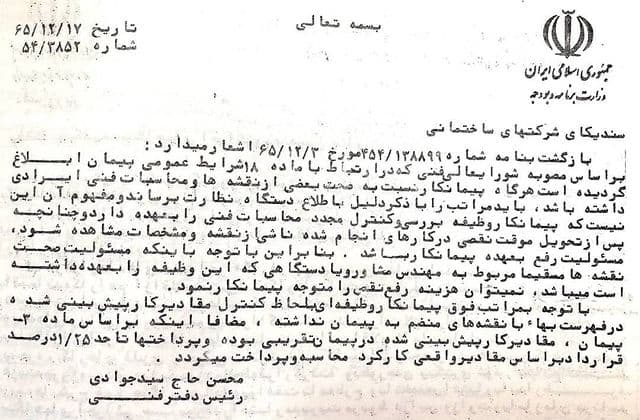 بسمه تعالی
تاریخ ۶۵/۱۲/۱۷
شماره ۵۴/۳۸۵۲
جمهوری اسلامی ایران
وزارت برنامه و بودجه
سندیکای شرکتهای ساختمانی
بازگشت بنامه شماره ۴۵۴/۱۳۸۸۹۹ مورخ ۶۵/۱۲/۳ اشعار میدارد :
براساس مصوبه شورایعالی فنی که در ارتباط با ماده ۱۸ شرایط عمومی پیمان ابلاغ
گردیده است هرگاه پیمانکار نسبت به صحت بعضی از نقشه ها و محاسبات فنی ایرادی
داشته باشد ، باید مراتب را با ذکر دلیل باطلاع دستگاه نظارت برساند و مفهوم آن این
نیست که پیمانکار وظیفه بررسی و کنترل مجدد محاسبات فنی را بعهده دارد و چنانچه
پس از تحویل موقت نقصی در کارهای انجام شده ناشی از نقشه و مشخصات مشاهده شود ،
مسئولیت رفع بعهده پیمانکار باشد . بنابراین با توجه باینکه مسئولیت صحت
نقشه ها مستقیما مربوط به مهندس مشاور و یا دستگاهی که این وظیفه را بعهده داشته
است میباشد ، نمیتوان هزینه رفع نقص را متوجه پیمانکار نمود .
با توجه بمراتب فوق پیمانکار وظیفه ای بلحاظ کنترل مقادیر کار پیش بینی شده
در فهرست بهاء با نقشه های منضم به پیمان نداشته ، مضافا اینکه براساس ماده ۳-
پیمان ، مقادیر کار پیش بینی شده در پیمان تقریبی بوده و پرداختها تا حد ۱/۲۵ درصد
قرارداد براساس مقادیر واقعی کارکرد محاسبه و پرداخت میگردد .
محسن حاج سیدجوادی
رئیس دفتر فنی